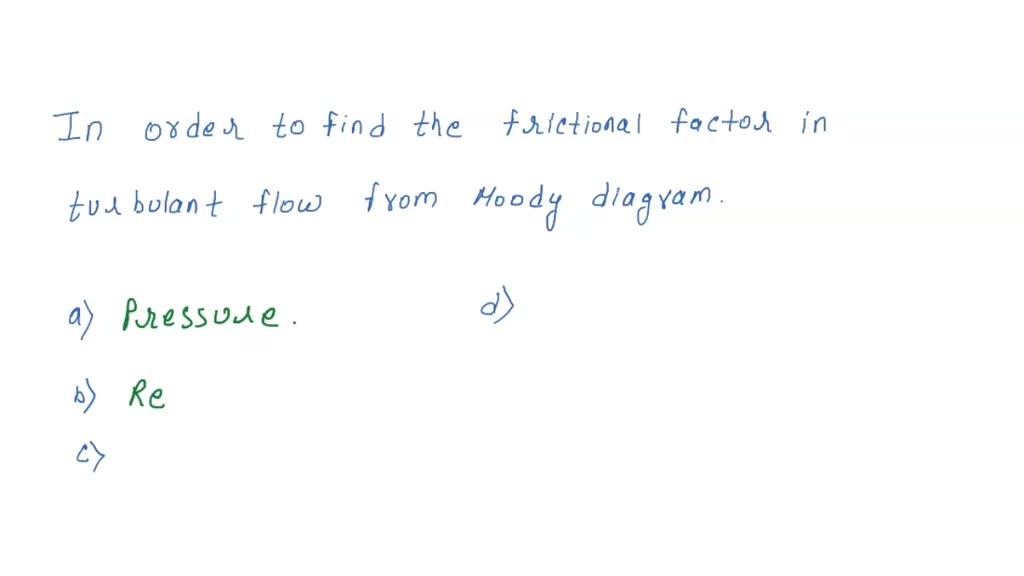 In order to find the frictional factor in
turbulant flow from Moody diagram.
a) Pressure.
d)
b) Re
c)